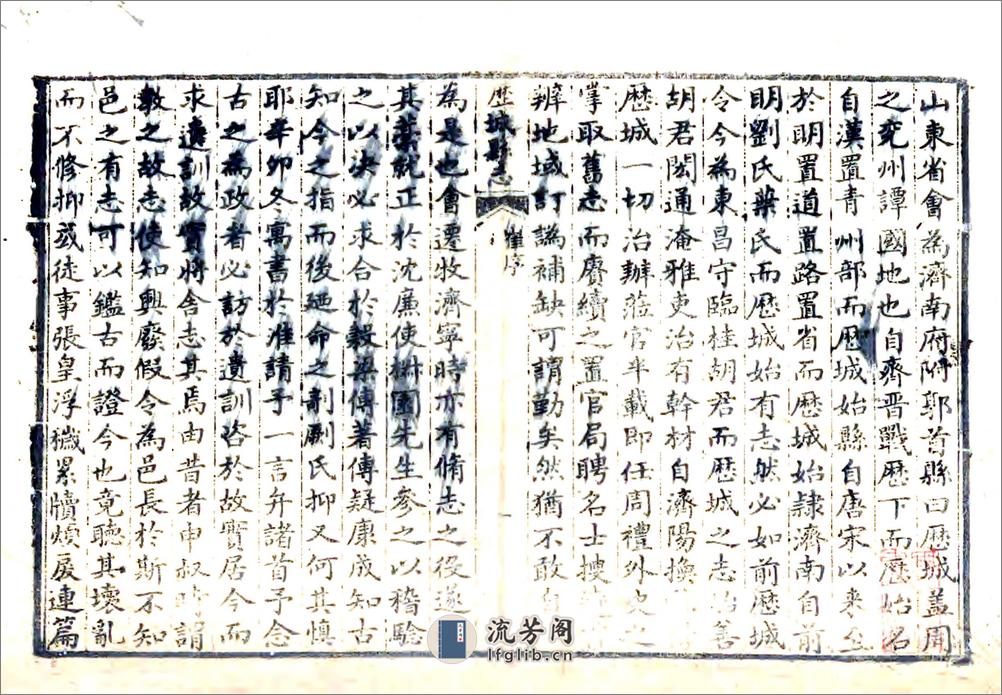 山東省會為濟南府附郭首縣曰歷城蓋周
之兖州譚國地也自齊晋戰歷下而歷始名
自漢置青州部而歷城始縣自唐宋以来至
於明置道置路置省而歷城始隷濟南自前
明劉氏葉氏而歷城始有志然必如前歷城
令今為東昌守臨桂胡君而歷城之志始善
胡君閎通淹雅吏治有幹材自濟陽換
歷城一切治辦蒞官半載即任周禮外史之
掌取舊志而賡續之置官局聘名士搜
辨地域訂譌補缺可謂勤矣然猶不敢自
歷城縣志 崔序 一
為是也會遷牧濟寧時亦有脩志之役遂
其藁就正於沈廉使椒園先生參之以稽驗
之以决必求合於穀梁傳著傳疑康成知古
知今之指而後廼命之剞劂氏抑又何其慎
耶辛卯冬寓書於淮請予一言弁諸首予念
古之為政者必訪於遺訓咨於故實居今而
求遺訓故實將舍志其焉由昔者申叔時謂
教之故志使知興廢假令為邑長於斯不知
邑之有志可以鑑古而證今也竟聽其壞亂
而不修抑或徒事張皇浮穢累牘煩辰連篇
流芳阁
lfglib.cn